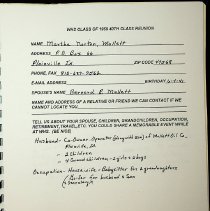 WHS CLASS OF 1959 40TH CLASS REUNION
NAME Martha Norton, Mallett
ADDRESS P.O. Box 66
Plainville Is. ZIP CODE 47568
PHONE, FAX 812-687-7266
E-MAIL ADDRESS BIRTHDAY 6-7-41
SPOUSE'S NAME Bernard E. Mallett
NAME AND ADDRESS OF A RELATIVE OR FRIEND WE CAN CONTACT IF WE
CANNOT LOCATE YOU.
TELL US ABOUT YOUR SPOUSE, CHILDREN, GRANDCHILDREN, OCCUPATION,
RETIREMENT, TRAVEL, ETC. YOU COULD SHARE A MEMORABLE EVENT WHILE
AT WHS. (BE NICE)
Husband - Co-Owner Operator of Mallett Oil Co.
Plainville,
2 Children
4 Grandchildren - 2 girls 2 boys
Occupation - Housewife - Babysitter for 2 grandsons
for husband & Son